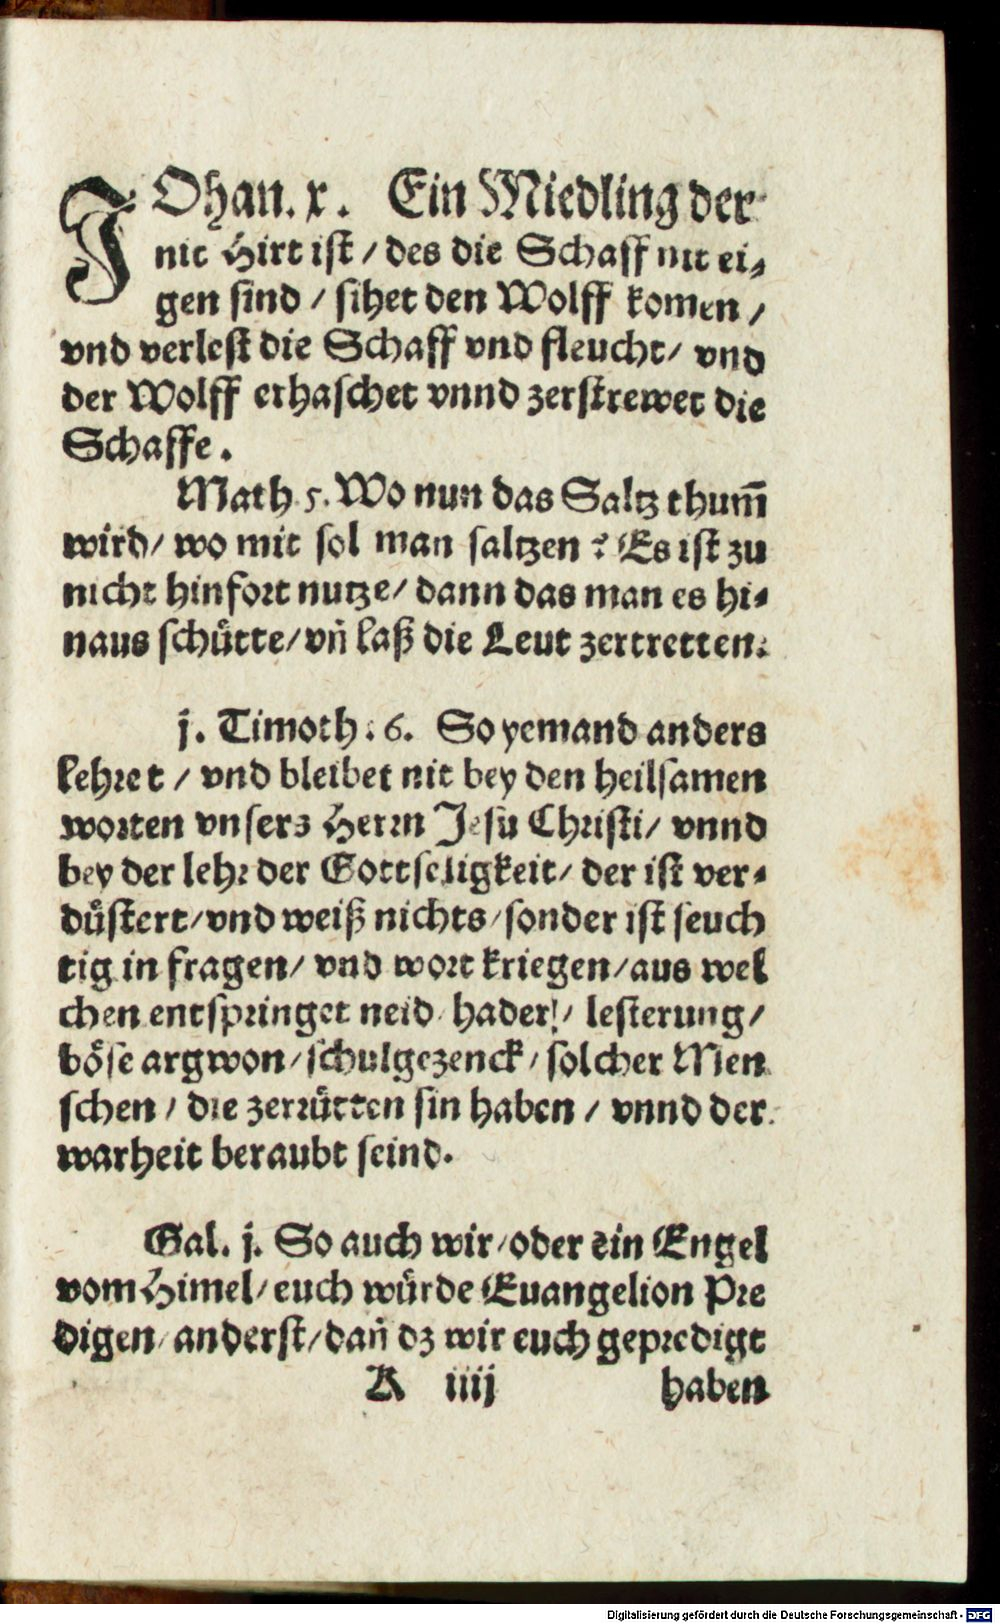 JOhan. x. Ein Miedling der
nit Hirt ist / des die Schaff nit ei-
gen sind / sihet den Wolff komen /
vnd verlest die Schaff vnd fleucht / vnd
der Wolff erhaschet vnnd zerstrewet die
Schaffe.
Math. 5. Wo nun das Saltz thum̄
wird / wo mit sol man saltzen ? Es ist zu
nicht hinfort nutze / dann das man es hi-
naus schütte / vn̄ laß die Leut zertretten.
j. Timoth. 6. So yemand anders
lehret / vnd bleibet nit bey den heilsamen
worten vnsers Herrn Jesu Christi / vnnd
bey der lehr der Gottseligkeit / der ist ver-
düstert / vnd weiß nichts / sonder ist seuch
tig in fragen / vnd wort kriegen / aus wel
chen entspringet neid / hader / lesterung /
böse argwon / schulgezenck / solcher Men
schen / die zerrütten sin haben / vnnd der
warheit beraubt seind.
Gal. j. So auch wir / oder ein Engel
vom Himel / euch würde Euangelion Pre
digen / anderst / dan̄ dz wir euch gepredigt
A iiij haben
Digitalisierung gefördert durch die Deutsche Forschungsgemeinschaft - DFG